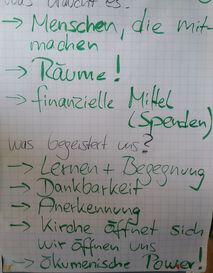 was braucht es:
→ Menschen, die mit-
machen
→ Räume!
→ finanzielle Mittel
(Spenden)
was begeistert uns?
→ Lernen + Begegnung
→ Dankbarkeit
→ Anerkennung
→ Kirche öffnet sich
wir öffnen uns
→ ökumenische Power!